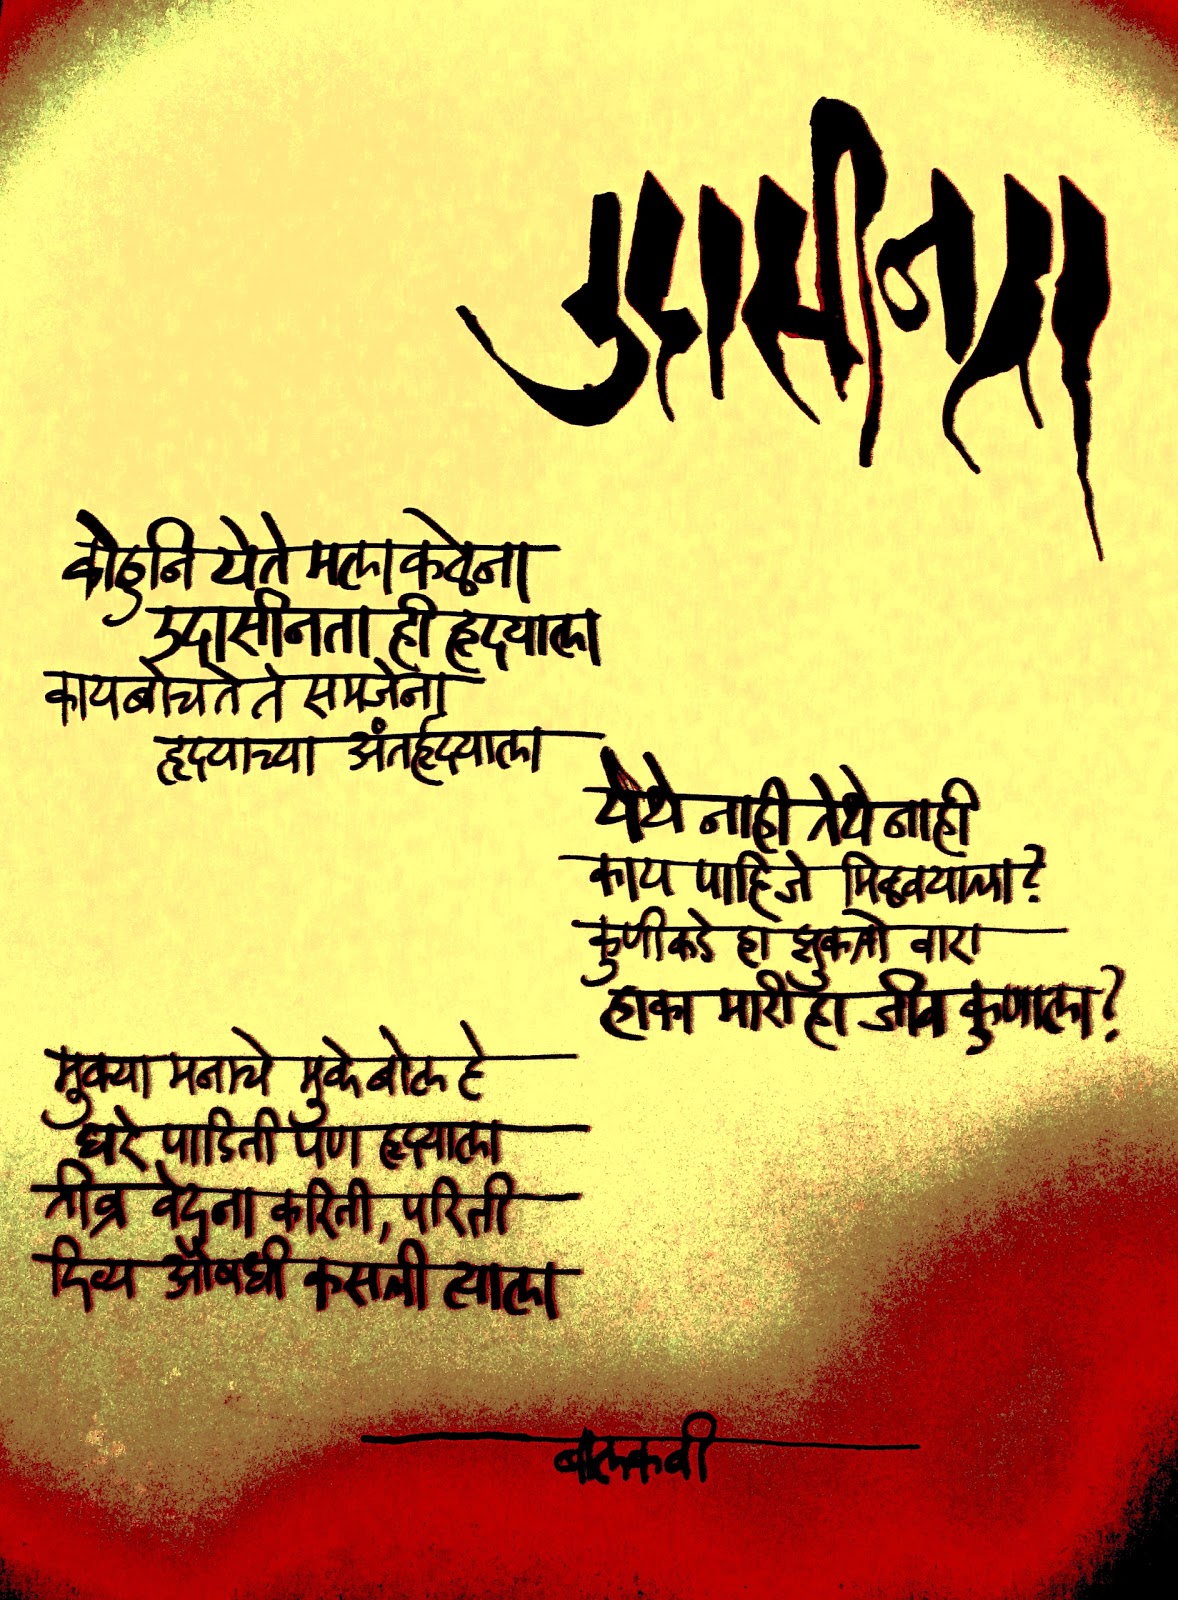 उदासीनता
कोठुनि येते मला कळेना
उदासीनता ही हृदयाला
काय बोचते ते समजेना
हृदयाच्या अंतर्हृदयाला
येथे नाही तेथे नाही
काय पाहिजे मिळवयाला?
कुणीकडे हा झुकतो वारा
हाका मारी हा जीव कुणाला?
मुक्या मनाचे मुके बोल हे
घरे पाडिती पण हृदयाला
तीव्र वेदना करिती, परि ती
दिव्य औषधी कसली त्याला
बालकवी